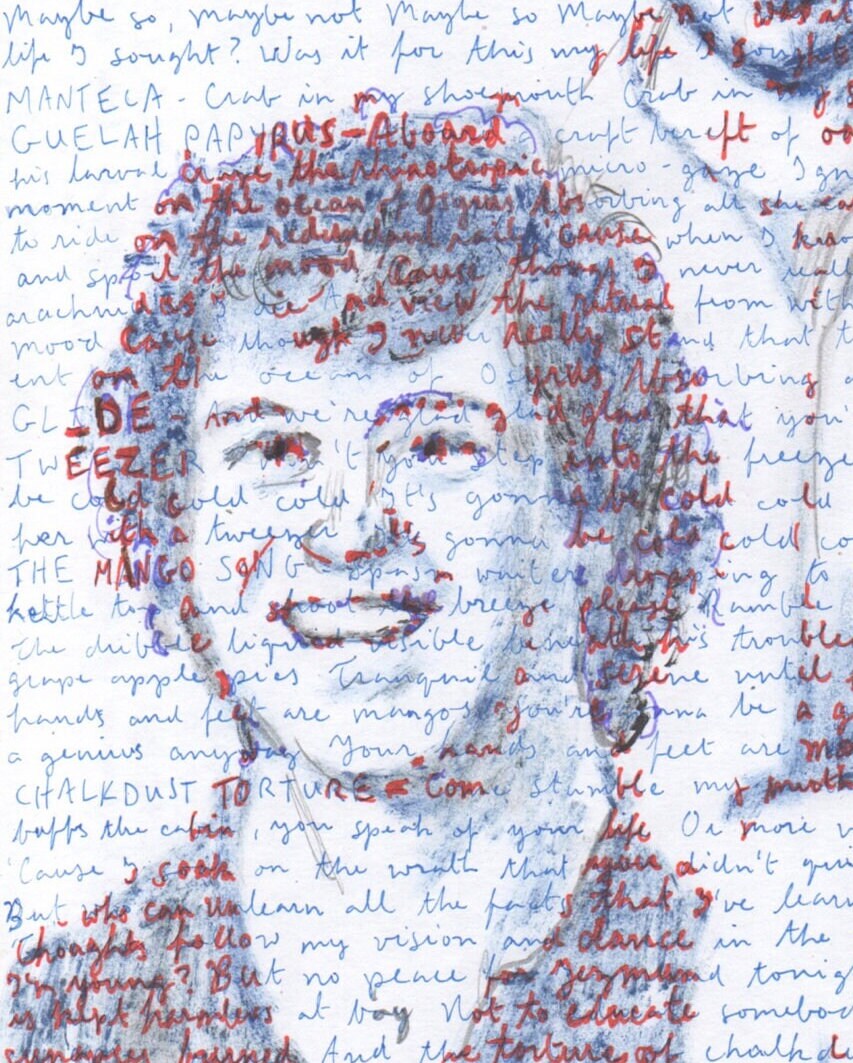 Maybe so, maybe not Maybe so Maybe not Was it
life I sought? Was it for this my life I sought
MANTECA - Crab in my shoemouth Crab in my s
GUELAH PAPYRUS - Aboard a craft bereft of oa
his larval craze the rhinotropic micro-gaze I
moment on the ocean of Osyrus Absorbing all she ca
to ride on the redundant rail 'Cause when I
and spoil the mood 'Cause though I never reall
arachnids I see And view the ritual from with
mood Cause though I never really st and that t
ent on the ocean of Osyrus Absorbing a
GLIDE - And we're glad glad glad that you'
TWEEZER - Won't you step into the freeze
be cold cold cold It's gonna be cold cold
her with a tweezer It's gonna be cold cold co
THE MANGO SONG - Spasm waiter dropping to
kettle top and shoot the breeze please Ramble
The dribble liquid visible beneath his trouble
grape apple pies Tranquil and serene until
hands and feet are mangos you're gonna be a g
a genius anyway Your hands and feet are ma
CHALKDUST TORTURE - Come stumble my mirth
buffs the cabin, you speak of your life Or more
'Cause I soak on the wrath that never didn't qui
But who can unlearn all the facts that I've learn
Thoughts follow my vision and dance in the
I'm young? But no peace for Jezmund tonig
is kept harmless at bay Not to educate somebod
burned And the torture of chalk d